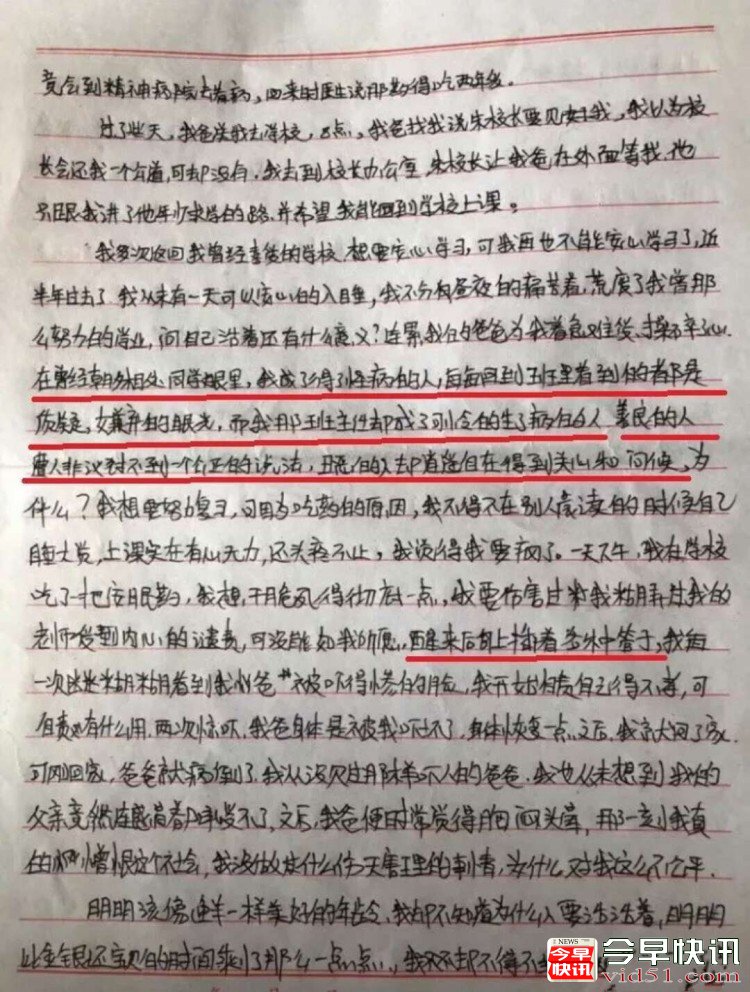 竟会到精神病院去看病，回来时医生说那药得吃两年多。
过了些天，我爸送我去学校，8点，我爸找我说朱校长要见见我，我以为校
长会还我一个公道，可却没有。我去到校长办公室，朱校长让我爸在外面等我，他
只跟我讲了他年少求学的路，并希望我能回到学校上课。
我多次返回我曾经喜欢的学校，想要安心学习，可我再也不能安心学习了，近
半年过去了，我从未有一天可以安心的入睡，我不分白昼夜的痛苦着，荒废了我曾那
么努力的学业，问自己活着还有什么意义？连累我的爸爸为我着急
在曾经朝夕相处同学眼里，我成了得了怪病的人，每每回到班里看到的都是
质疑，嫌弃的眼光，而我那班主任却成了可怜的生了病的人 善良的人
遭人非议讨不到一个公正的说法，丑恶的人却逍遥自在得到关心和问候，为
什么？我想要努力复习，可因为吃药的原因，我不得不在别人晨读的时候自己
睡大觉，上课实在有心无力，还头疼不止，我觉得我要疯了。一天下午，我在学校
吃了一把安眠药，我想，干脆疯得彻底一点，我要伤害过我
老师受到内心的谴责，可没能如我所愿，醒来后身上插着各种管子，我每
一次迷迷糊糊看到我爸爸被吓得惨白的脸，我开始自责自己得不孝，可
自责还有什么用，两次惊吓，我爸身体是被我吓坏了，身体恢复一点之后，我就回了家，
可刚回家，爸爸就病倒了，我从没见过那样吓人的爸爸，我也从未想到我的
父亲竟然连感冒都承受不了，之后，我爸便时常觉得胸闷头晕，那一刻我真
的憎恨这个社会，我没做过什么伤天害理的事情，为什么对我这么不公平。
明明该像花样一样美好的年龄，我却不知道为什么要活着，明明
比金银还宝贵的时间剩了那么一点点，我却不得不
NEWS
今早
快讯
今早快讯
vid51.com